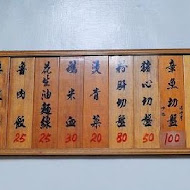 魚切盤 100
豬心切盤 50
粉肝切盤 80
燙青菜 20
鴨米血 30
花生油麵線 25
香肉飯 25